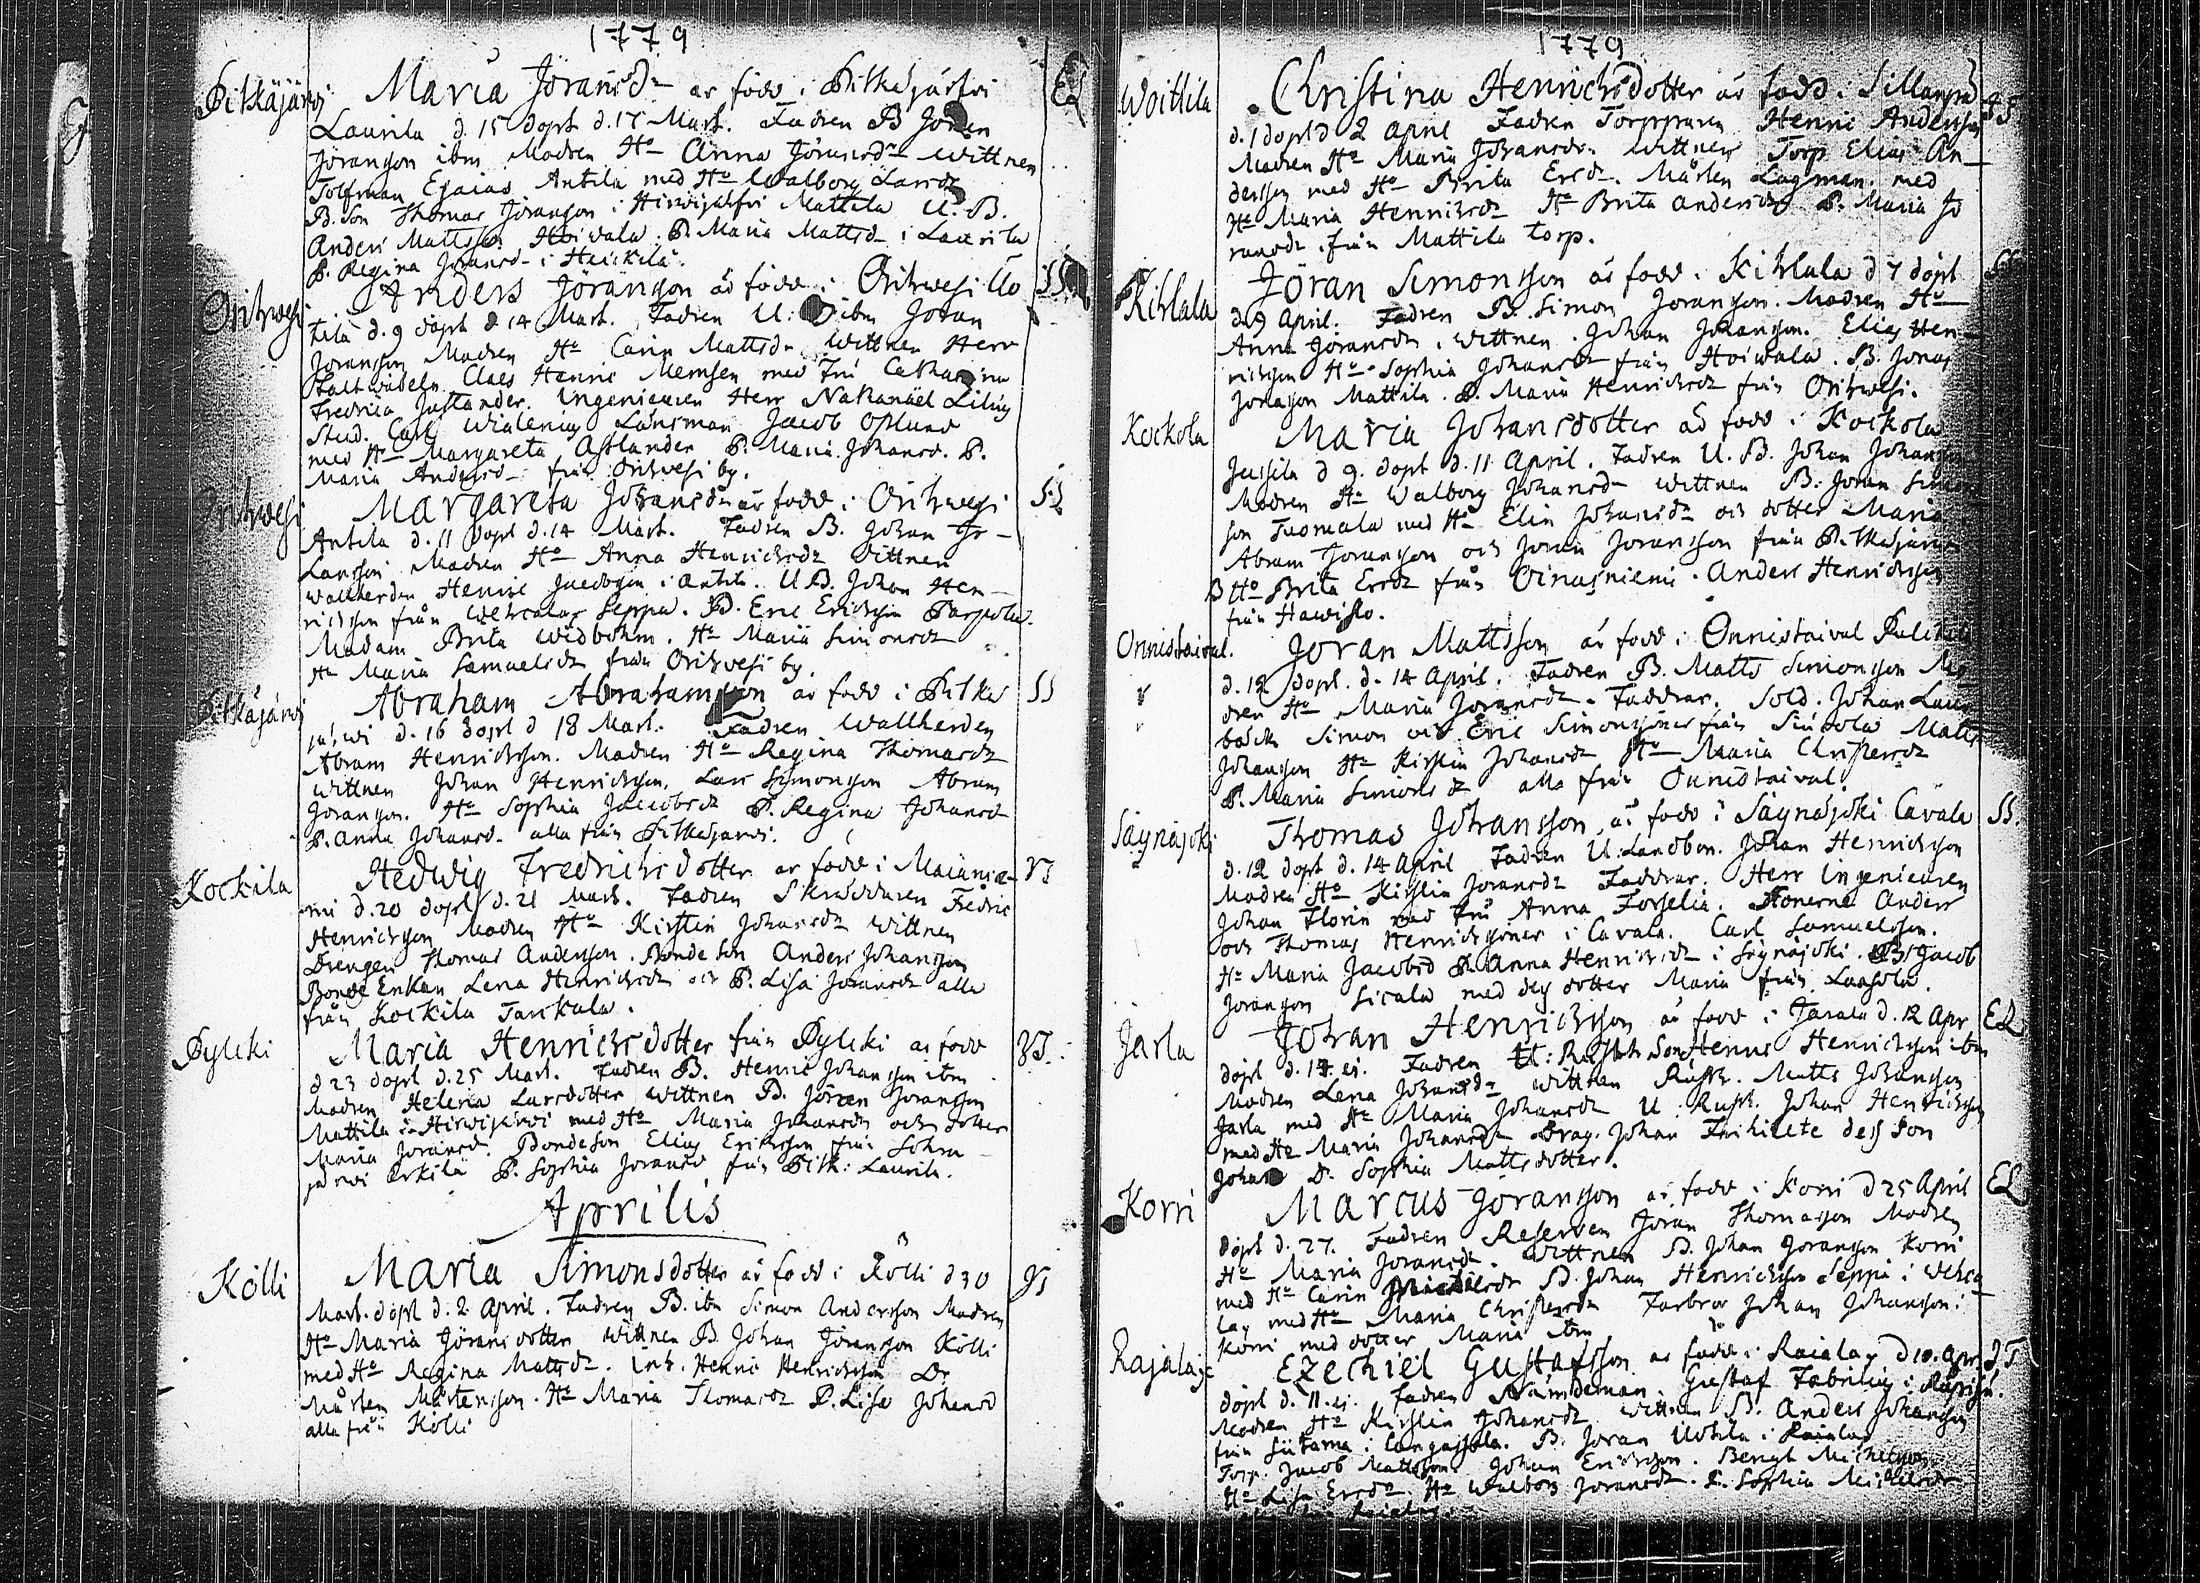 1779
Pitkäjärvi Maria Jöransdr är född i Pitkäjärfvi EL
Laurila d. 15 döpt d. 17 Mart. Fadren B Jöran
Jöransson ibm Modren Ho Anna Jöransdr Wittnen
Tolfman Esaias Antila med Ho Walborg Larsdr
B. Son Thomas Jöransson i Hirvijärfvi Mattila U. B.
Anders Mattsson Hoivala. P. Maria Mattsdr i Laurila
P. Regina Jöransd i Heickilä.
Orihvesi Anders Jöransson är född i Orihvesi Uo SS
tila d. 9 döpt d 14 Mart. Fadren U: B ibm Jöran
Jöransson Modren Ho Carin Mattsdr Wittnen Herr
Faltwäbeln Claes Henric Memsen med Fru Catharina
Fredrica Justander. Ingenieuren Herr Nathanäel Lilius
Stud. Carl Wialenius Länsman Jacob Oplund
med Ho Margareta Astlander P. Maria Johansd. P.
Maria Andersd från Orihvesi by.
Orihvesi Margareta Johansdr är född i Orihvesi SL
Antila d. 11 döpt d. 14 Mart. Fadren B. Johan Jo-
hansson Modren Ho Anna Henrichsdr Wittnen
Wallherden Henric Jacobsson i Antila. U B. Johan Hen-
richsson från Wehcalax Seppä. B. Eric Ericksson Parpola.
Madam Brita Widbohm. Ho Maria Simonsdr
Ho Maria Samuelsdr från Orihvesi by.
Pitkäjärvi Abraham Abrahamsson är född i Pitkä SS
järvi d. 16 döpt d 18 Mart. Fadren Wallherden
Abram Henrichsson. Modren Ho Regina Thomasdr
Wittnen Johan Henrichsson. Lars Simonsson Abram
Jöransson. Ho Sophia Jacobsdr P. Regina Johansd
P. Anna Johansd. alla från Pitkäjärvi.
Kockila Hedwig Fredrichsdotter är född i Maiania-
mi d. 20 döpt d. 21 Mart. Fadren Skräddaren Fredric
Henrichsson Modren Ho Kirstin Johansdr Wittnen
Drengen Thomas Andersson. Bonde Son Anders Johansson
Bonde Enkan Lena Henrichsdr och P. Lisa Jöransdr alla
från Kockila Tarckala.
Pyleki Maria Henrichsdotter från Pyleki är född
d 23 döpt d. 25 Mart. Fadren B. Henric Johansson ibm
Modren Helena Larsdotter Wittnen B. Jöran Jöransson
Mattila i Hirvijärvi med Ho Maria Johansdr och dotter
Maria Jöransd. Bondeson Elias Ericksson från Sohra
järvi Erkilä P. Sophia Jöransd från Pitk: Laurila.
Aprilis
Kölli Maria Simonsdotter är född i Kölli d 30
Mart. döpt d. 2 April. Fadren B. ibm Simon Andersson Modren
Ho Maria Jöransdotter Wittnen B Johan Jöransson Kölli
med Ho Regina Mattsdr. Inh. Henric Henricksson Dr
Mårten Mårtensson. Ho Maria Thomasdr P. Lisa Johansd
alla från Kölli
1779
Woitila Christina Henrichsdotter är född i Sillanpä
d. 1 döpt d 2 April Fadren Torpparen Henric Andersson
Modren Ho Maria Johansdr. Wittnen Torp Elias An-
dersson med Ho Brita Ersdr. Mårten Lagman med
Ho Maria Henrichsdr Ho Brita Andersdr P. Maria Jö
ransdr från Mattila torp.
Kihlala Jöran Simonsson är född i Kihlala d 7 döpt
d. 9 April. Fadren B. Simon Jöransson. Modren Ho
Anna Jöransdr. Wittnen Johan Johansson. Elias Hen-
richsson Ho Sophia Johansdr från Hoiwala. B. Jonas
Jonasson Mattila. P. Maria Henrichsdr från Orihvesi.
Kockola Maria Johansdotter är född i Kockola
Jussila d 9. döpt d. 11 April. Fadren U. B. Johan Johansson
Modren Ho Walborg Johansdr Wittnen B. Jöran Simons
son Tuomala med Ho Elin Johansdr och dotter Maria
Abram Jöransson och Jöran Jöransson från Pitkäjärvi
Ho Brita Ersdr från Oinasniemi. Anders Henrichsson
från Hawisto.
Onnistaival. Jöran Mattsson är född i Onnistaival
d. 12 döpt. d. 14 April. Fadren B. Matts Simonsson Mo
dren Ho Maria Jöransdr. Faddrar. Sold. Johan Laur
bäck Simon och Eric Simonssöner från Matts
Johansson Ho Kirstin Johansdr Ho Maria Christersdr
P. Maria Simonsdr alla från Onnistaival.
Säynäjoki Thomas Johansson är född i Säynäjoki Cavala SS.
d. 12 döpt d. 14 April Fadren U. Landbon. Johan Henricksson
Modren Ho Kirstin Jöransdr Faddrar. Herr Ingenieuren
Johan Florin med Fru Anna Forselia. Bönerne Anders
och Thomas Henrichssöner i Cavala. Carl Samuelsson.
Ho Maria Jacobsd P. Anna Henrichsdr i Säynäjoki. B. Jacob
Jöransson Sicala med des dotter Maria från Laasola.
Jarla Johan Henricksson är född i Jarala d. 12 Apr EL
döpt d. 14. ej. Fadren U: Rusth Son Henric Henricksson ibm
Modren Lena Johansdr Wittnen Rusth. Matts Johansson
Jarla med Ho Maria Johansdr U. Rusth. Johan Henricksson
med Ho Maria Johansdr Drag. Johan dess son
Johan D. Sophia Mattsdotter.
Korri Marcus Jöransson är född i Korri d 25 April EL
döpt d. 27. Fadren Reserven Jöran Thomasson Modren
Ho Maria Jöransdr. Wittnen B. Johan Jöransson Korri
med Ho Carin Michelsdr B. Johan Henricksson Seppä i Wehca
lax med Ho Maria Christersdr Farbror Johan Johansson i
Korri med dotter Maria ibm
Rajalax Ezechiel Gustafsson är född i Raialax d 10. Apr.
döpt d. 11. ej. Fadren Nämdeman Gustaf Fabrilius i
Modren Ho Kirstin Johansdr Wittnen B. Anders Johansson
från Siitama i Längassola. B. Jöran Uotila i Raialax
Torp. Jacob Mattsson. Johan Ericksson. Bengt Michelsson
Ho Lisa Ersdr. Ho Walborg Jöransdr. P. Sophia Michelsdr